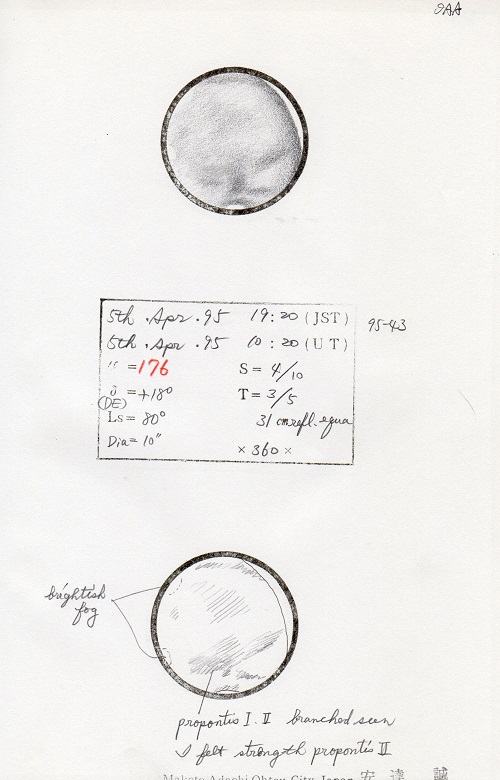 OAA
5th . Apr . 95 19 : 20 (JST)
5th . Apr . 95 10 : 20 (UT)
95-43
= 176 S = 4/10
= +18° T = 3/5
(DE)
Ls = 80° 31 cm refl. equa
Dia = 10"
× 360 ×
brightish
fog
propontis I. II branched seen
I felt strength propontis II
Makoto Adachi Ohtsu City, Japan 安達 誠